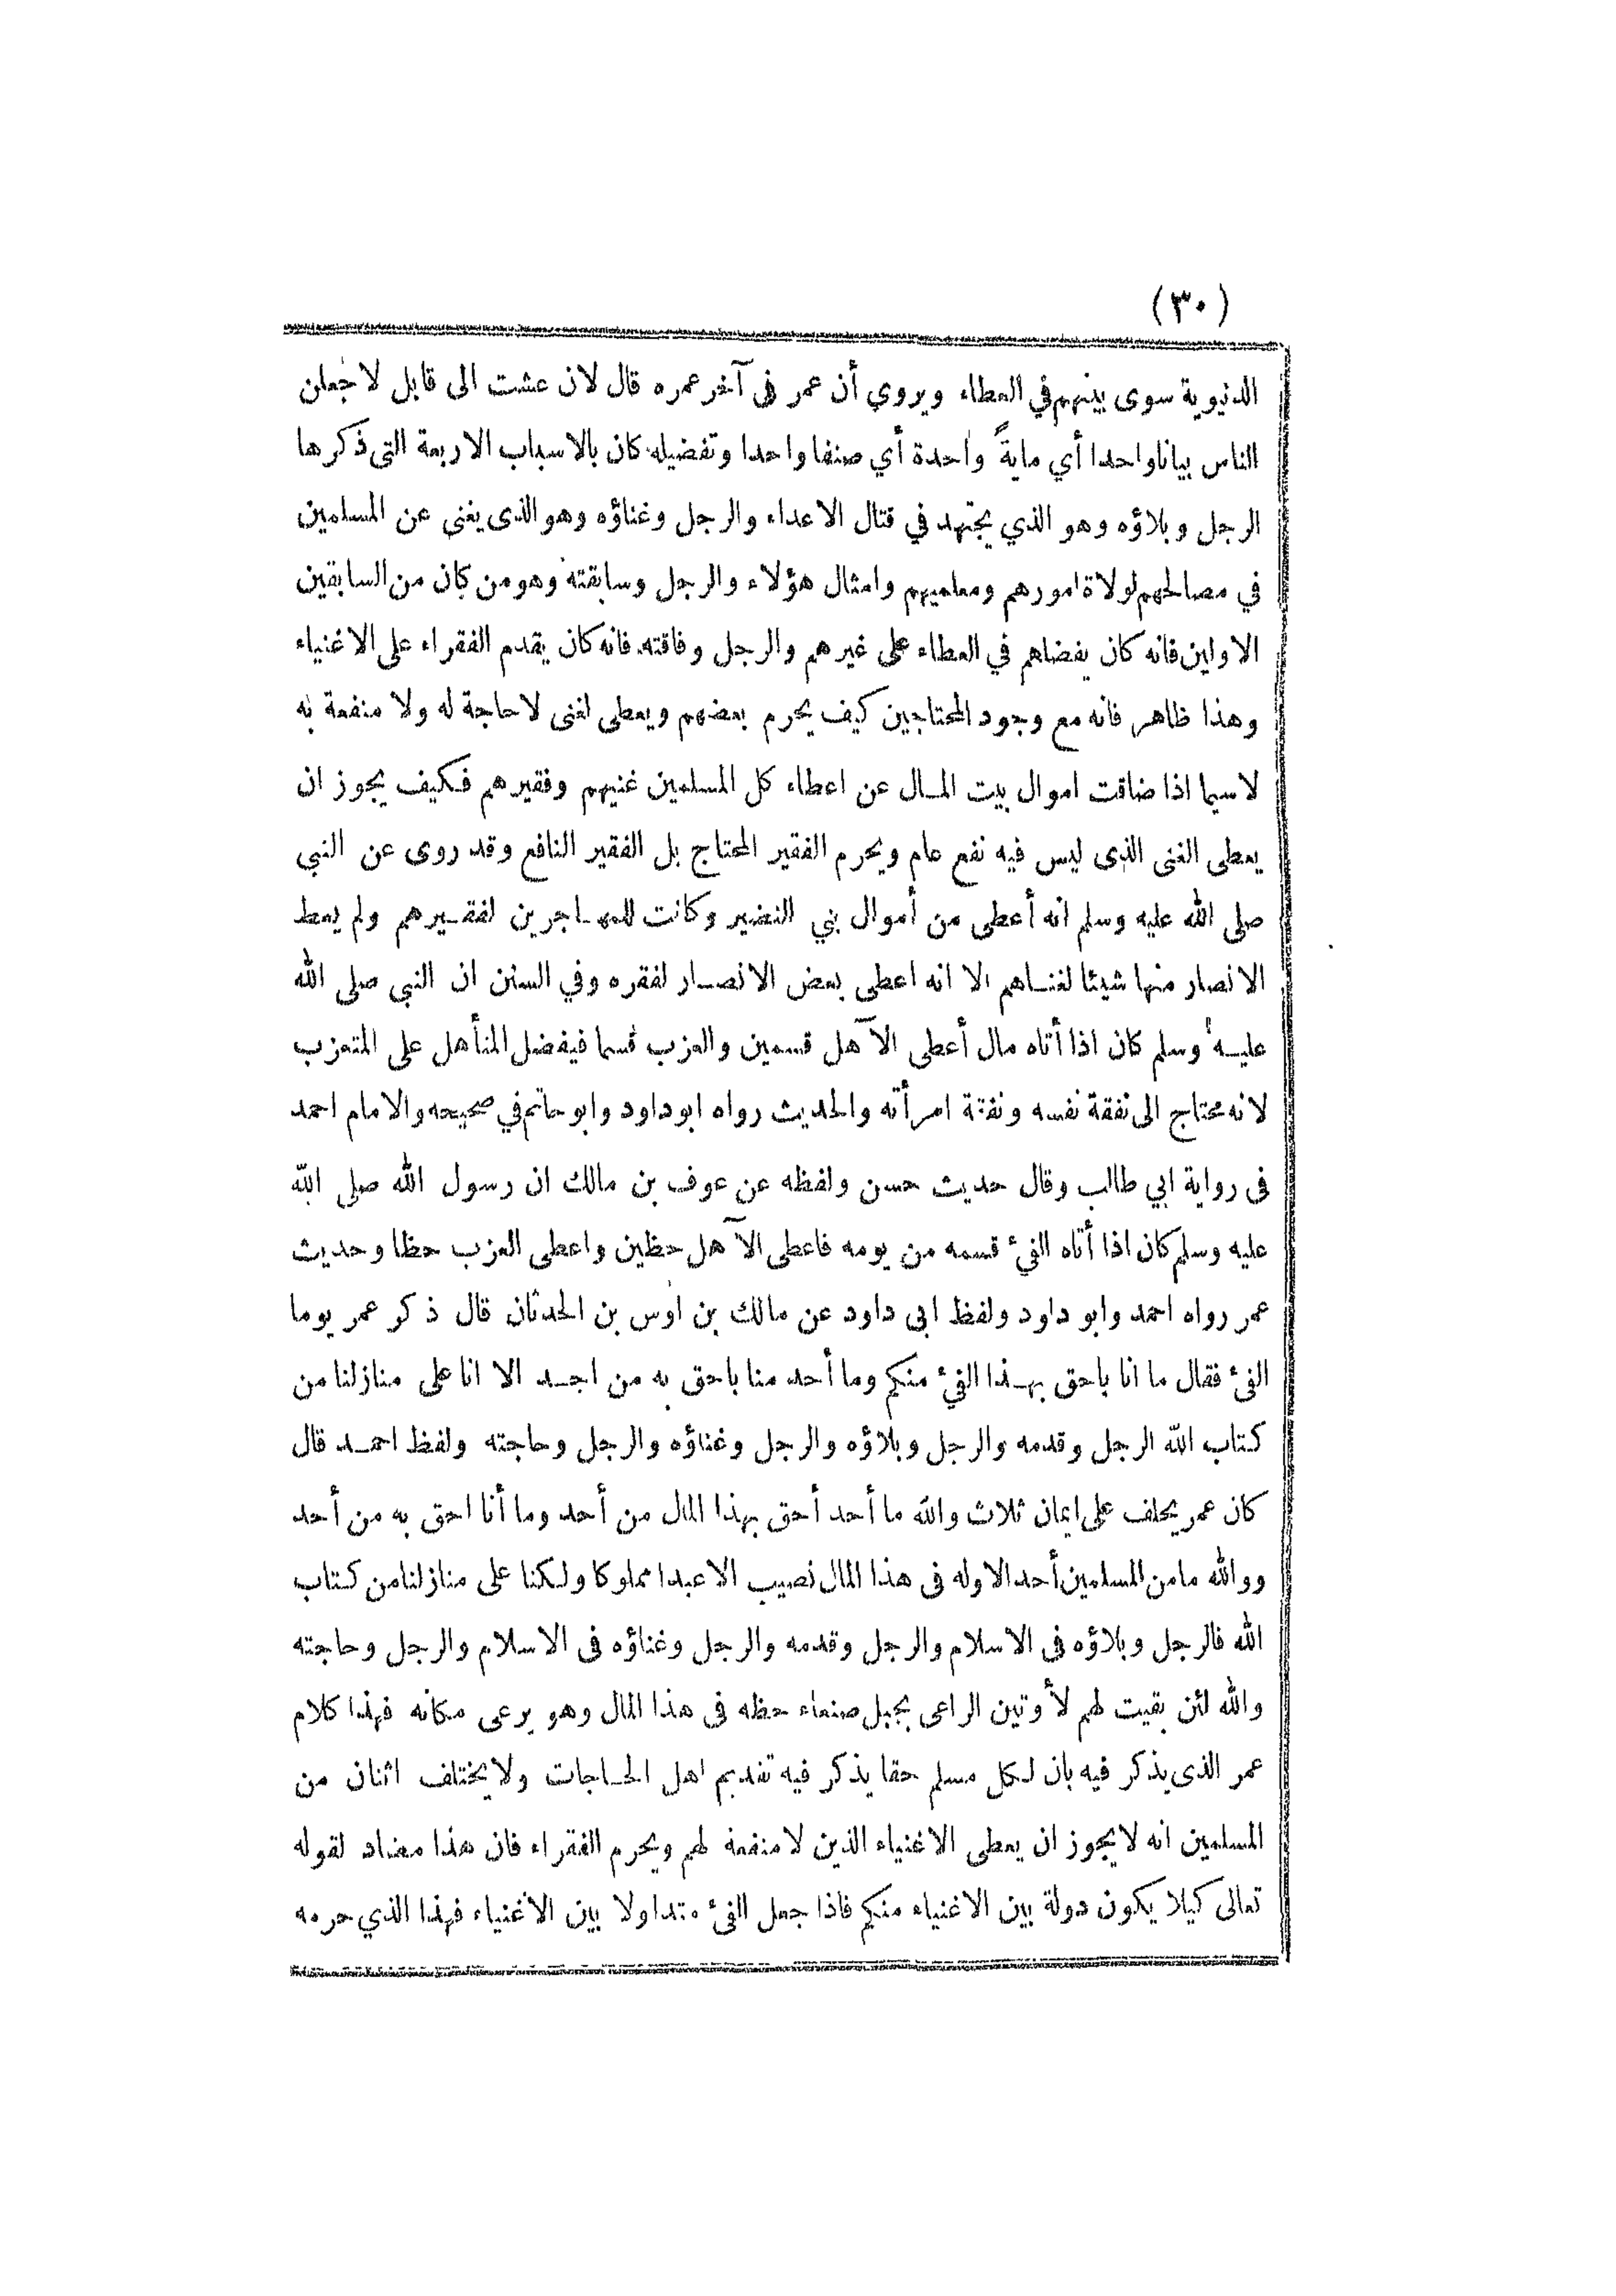 (٣٠)
الدنيوية سوى بينهم في العطاء ويروي أن عمر فى آخر عمره قال لان عشت الى قابل لاجعلن
الناس بيانا واحدا أي مايةً واحدة أي صنفا واحدا وتفضيله كان بالاسباب الاربعة التى ذكرها
الرجل وبلاؤه وهو الذي يجتهد في قتال الاعداء والرجل وغناؤه وهو الذى يغنى عن المسلمين
في مصالحهم لولاة امورهم ومعلميهم وامثال هؤلاء والرجل وسابقته وهو من كان من السابقين
الاولين فانه كان يفضلهم في العطاء على غيرهم والرجل وفاقته فانه كان يقدم الفقراء على الاغنياء
وهذا ظاهر فانه مع وجود المحتاجين كيف يحرم بعضهم ويعطى لغنى لا حاجة له ولا منفعة به
لا سيما اذا ضاقت اموال بيت المال عن اعطاء كل المسلمين غنيهم وفقيرهم فكيف يجوز ان
يعطى الغنى الذى ليس فيه نفع عام ويحرم الفقير المحتاج بل الفقير النافع وقد روى عن النبي
صلى الله عليه وسلم انه أعطى من أموال بني النضير وكانت للمهاجرين لفقيرهم ولم يعط
الانصار منها شيئا لغناهم الا انه اعطى بعض الانصار لفقره وفي السنن ان النبي صلى الله
عليه وسلم كان اذا أتاه مال أعطى الآهل قسمين والعزب قسما فيفضل المتأهل على المتعزب
لانه محتاج الى نفقة نفسه ونفقة امرأته والحديث رواه ابو داود وابو حاتم في صحيحه والامام احمد
فى رواية ابي طالب وقال حديث حسن ولفظه عن عوف بن مالك ان رسول الله صلى الله
عليه وسلم كان اذا أتاه الفئ قسمه من يومه فاعطى الآهل حظين واعطى العزب حظا وحديث
عمر رواه احمد وابو داود ولفظ ابى داود عن مالك بن اوس بن الحدثان قال ذكر عمر يوما
الفئ فقال ما انا باحق بهذا الفئ منكم وما أحد منا باحق به من احد الا انا على منازلنا من
كتاب الله الرجل وقدمه والرجل وبلاؤه والرجل وغناؤه والرجل وحاجته ولفظ احمد قال
كان عمر يحلف على ايمان ثلاث والله ما أحد أحق بهذا المال من أحد وما أنا احق به من أحد
ووالله ما من المسلمين أحد الا وله فى هذا المال نصيب الا عبدا مملوكا ولكنا على منازلنا من كتاب
الله فالرجل وبلاؤه فى الاسلام والرجل وقدمه والرجل وغناؤه فى الاسلام والرجل وحاجته
والله لئن بقيت لهم لأوتين الراعى بجبل صنعاء حظه فى هذا المال وهو يرعى مكانه فهذا كلام
عمر الذى يذكر فيه بان لكل مسلم حقا يذكر فيه تقديم اهل الحاجات ولا يختلف اثنان من
المسلمين انه لا يجوز ان يعطى الاغنياء الذين لا منفعة لهم ويحرم الفقراء فان هذا مضاد لقوله
تعالى كيلا يكون دولة بين الاغنياء منكم فاذا جعل الفئ متداولا بين الاغنياء فهذا الذي حرمه